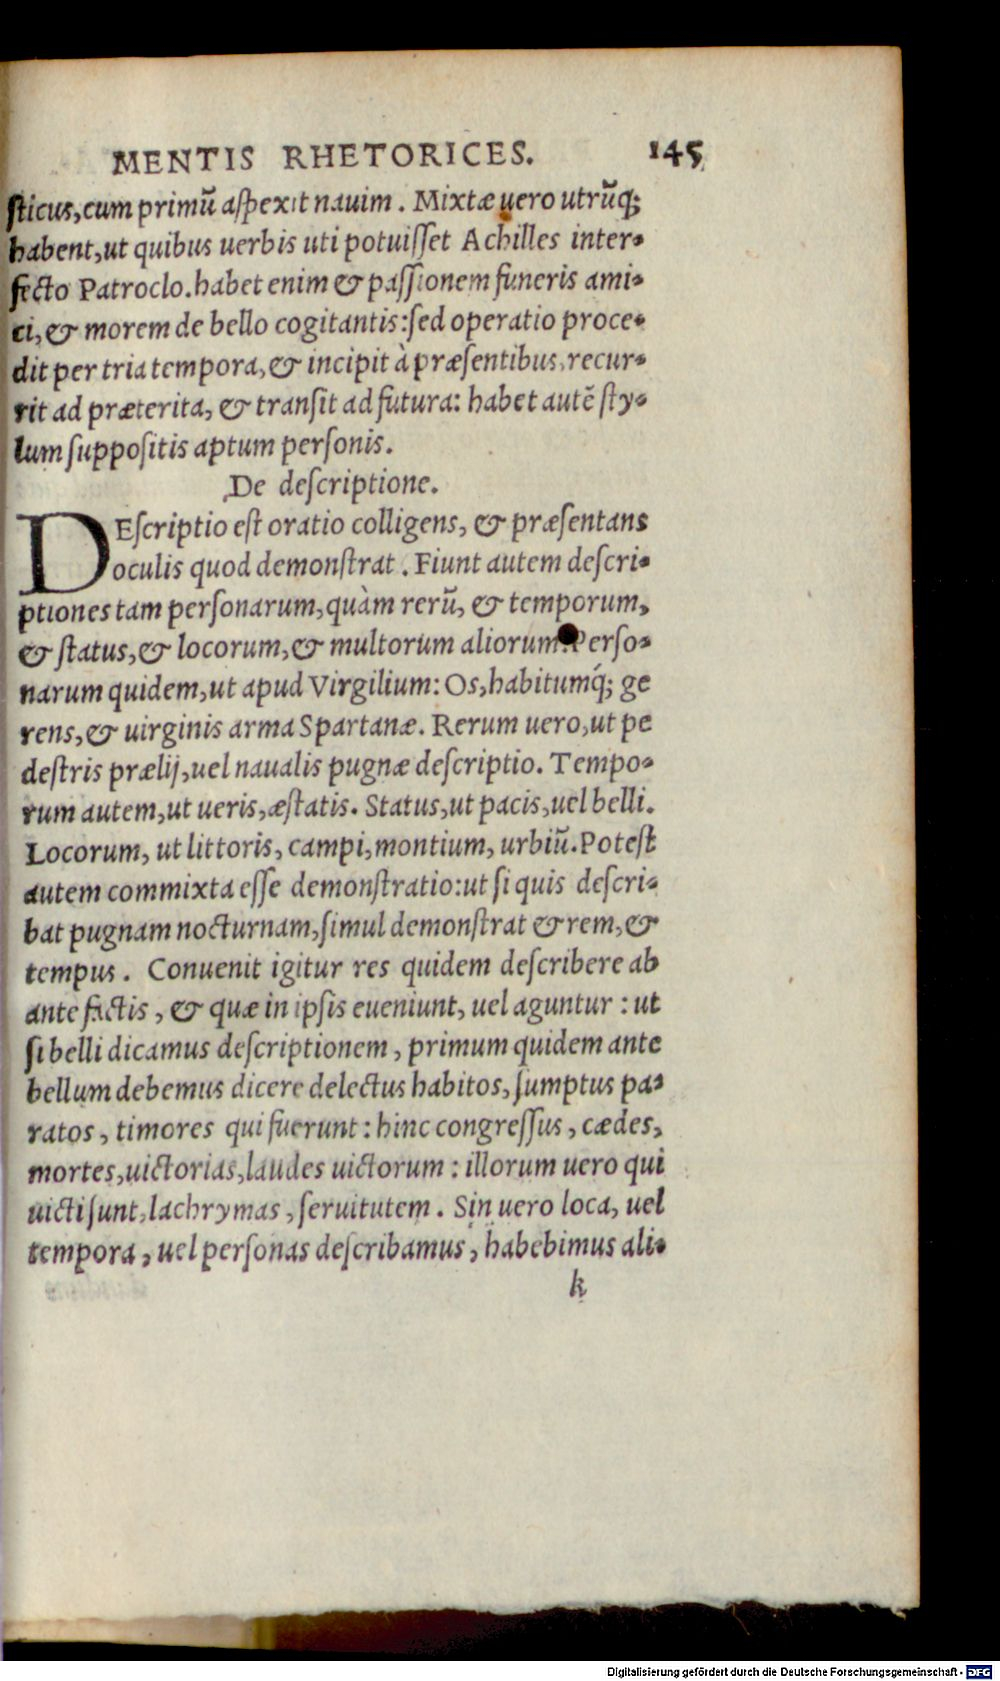 MENTIS RHETORICES. 145
sticus, cum primũ aspexit nauim. Mixtæ uero utrũq;
habent, ut quibus uerbis uti potuisset Achilles inter-
fecto Patroclo. habet enim & passionem funeris ami-
ci, & morem de bello cogitantis: sed operatio proce-
dit per tria tempora, & incipit à præsentibus, recur-
rit ad præterita, & transit ad futura: habet autẽ sty-
lum suppositis aptum personis.
De descriptione.
DEscriptio est oratio colligens, & præsentans
oculis quod demonstrat. Fiunt autem descri-
ptiones tam personarum, quàm rerũ, & temporum,
& status, & locorum, & multorum aliorum. Perso-
narum quidem, ut apud Virgilium: Os, habitumq́; ge
rens, & uirginis arma Spartanæ. Rerum uero, ut pe
destris prælij, uel naualis pugnæ descriptio. Tempo-
rum autem, ut ueris, æstatis. Status, ut pacis, uel belli.
Locorum, ut littoris, campi, montium, urbiũ. Potest
autem commixta esse demonstratio: ut si quis descri-
bat pugnam nocturnam, simul demonstrat & rem, &
tempus. Conuenit igitur res quidem describere ab
ante factis, & quæ in ipsis eueniunt, uel aguntur: ut
si belli dicamus descriptionem, primum quidem ante
bellum debemus dicere delectus habitos, sumptus pa-
ratos, timores qui fuerunt: hinc congressus, cædes,
mortes, uictorias, laudes uictorum: illorum uero qui
uicti sunt, lachrymas, seruitutem. Sin uero loca, uel
tempora, uel personas describamus, habebimus ali-
k
Digitalisierung gefördert durch die Deutsche Forschungsgemeinschaft - DFG